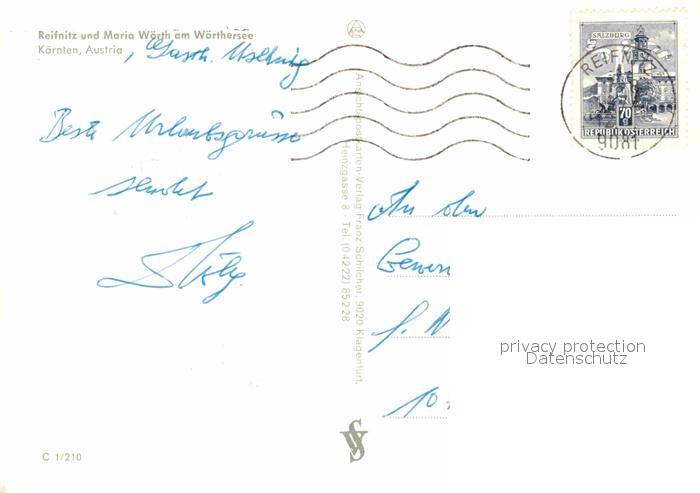 Reifnitz und Maria Wörth am Wörthersee
Kärnten, Austria
Beste Urlaubsgrüsse
sendet
C 1/210
Ansichtspostkarten-Verlag Franz Schilcher, 9020 Klagenfurt,
Heinzgasse 8 - Tel. (0 42 22) 85 2 28
SALZBURG
70
REPUBLIK ÖSTERREICH
REIFNITZ
9081
An den
10
privacy protection
Datenschutz